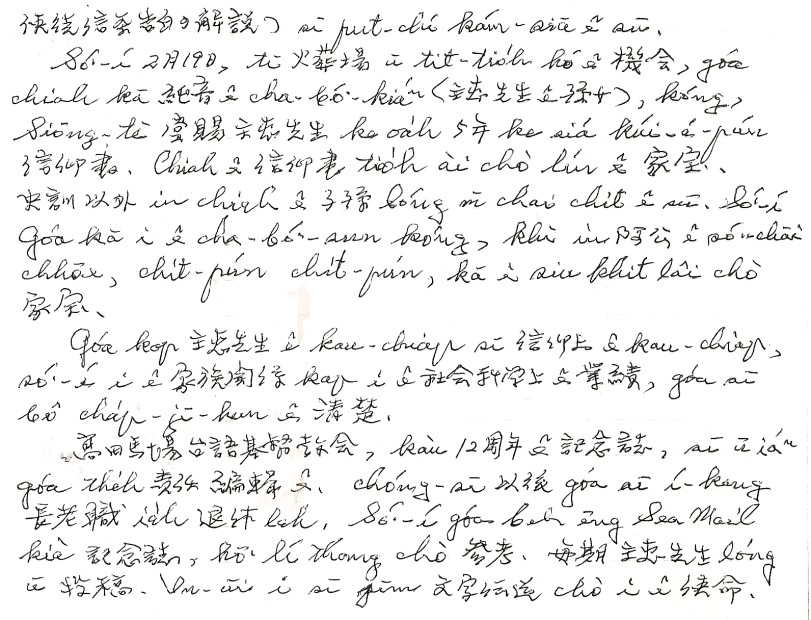 使徒信条告白の解説) sī put-chí kám-siā ê sū.
Só͘-í 2月19日, tī 火葬場 ū tit-tio̍h hó ê 機会, góa
chiah kā 純音 ê cha-bó͘-kiáⁿ (主恵先生 ê 孫女), kóng,
Siōng-tè 賞賜 主恵先生 ke oa̍h 5年 ke siá kúi-ā-pún
信仰書. Chiah ê 信仰書 tio̍h ài chò lín ê 家宝.
史訓 以外 in chiah ê 子孫 lóng m̄ chai chit ê sū. Só͘-í
Góa kā i ê cha-bó͘-sun kóng, khì in 阿公 ê só͘-chāi
chhōe, chi̍t-pún chi̍t-pún, kā i siu khit-lâi chò
家宝.
Góa kap 主恵先生 ê kau-chiap sī 信仰上 ê kau-chiap,
só͘-í i ê 家族関係 kap i ê 社会科学上 ê 業績, góa sī
bô cha̍p-jī-hun ê 清楚.
高田馬場台語基督教会, kàu 12周年 ê 記念誌, sī ū iáⁿ
góa the̍h 責任 編輯 ê. chóng-sī 以後 góa sī í-keng
長老職 ia̍h 退休 lah. Só͘-í góa beh ēng Sea Mail
kià 記念誌, hō͘ lí thang chò 参考. 毎期 主恵先生 lóng
ū 投稿. In-ūi i sī 文字伝道 chò i ê 使命.